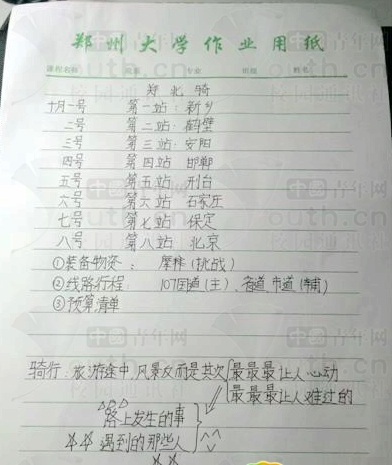 郑州大学作业用纸
课程名称 专业 班级 姓名
郑北骑
十月一号 第一站：新乡
二号 第二站：鹤壁
三号 第三站：安阳
四号 第四站 邯郸
五号 第五站 邢台
六号 第六站 石家庄
七号 第七站 保定
八号 第八站 北京
①装备物资： 摩拜(挑战)
②线路行程： 107国道(主)、省道 市道(辅)
③预算清单
骑行：旅游途中,风景反而是其次 最最最让人心动
最最最让人难过的
路上发生的事
遇到的那些人
中国青年网
youth.cn
校园通讯社